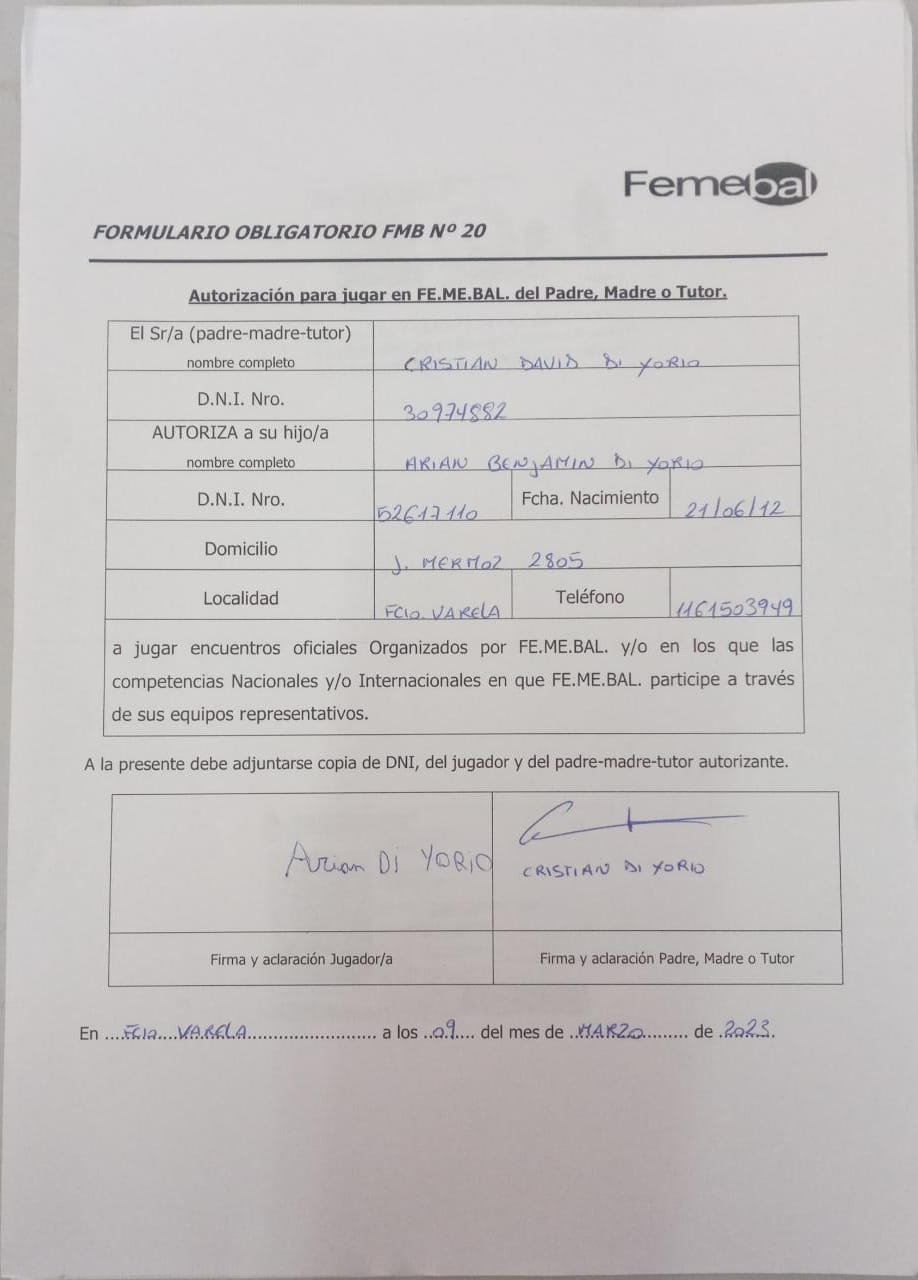 Femebal
FORMULARIO OBLIGATORIO FMB Nº 20
Autorización para jugar en FE.ME.BAL. del Padre, Madre o Tutor.
El Sr/a (padre-madre-tutor)
nombre completo
CRISTIAN DAVID DI YORIO
D.N.I. Nro.
30974882
AUTORIZA a su hijo/a
nombre completo
ARIAN BENJAMIN DI YORIO
D.N.I. Nro.
52617110
Fcha. Nacimiento
21/06/12
Domicilio
J. MERMOZ 2805
Localidad
FCIO. VARELA
Teléfono
1161503949
a jugar encuentros oficiales Organizados por FE.ME.BAL. y/o en los que las
competencias Nacionales y/o Internacionales en que FE.ME.BAL. participe a través
de sus equipos representativos.
A la presente debe adjuntarse copia de DNI, del jugador y del padre-madre-tutor autorizante.
Arian DI YORIO
CRISTIAN DI YORIO
Firma y aclaración Jugador/a
Firma y aclaración Padre, Madre o Tutor
En ....FCIO....VARELA........................... a los ..09.... del mes de ..MARZO......... de .2023.